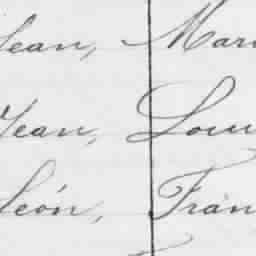 Jean, Mari
Jean, Loui
Léon, Fran